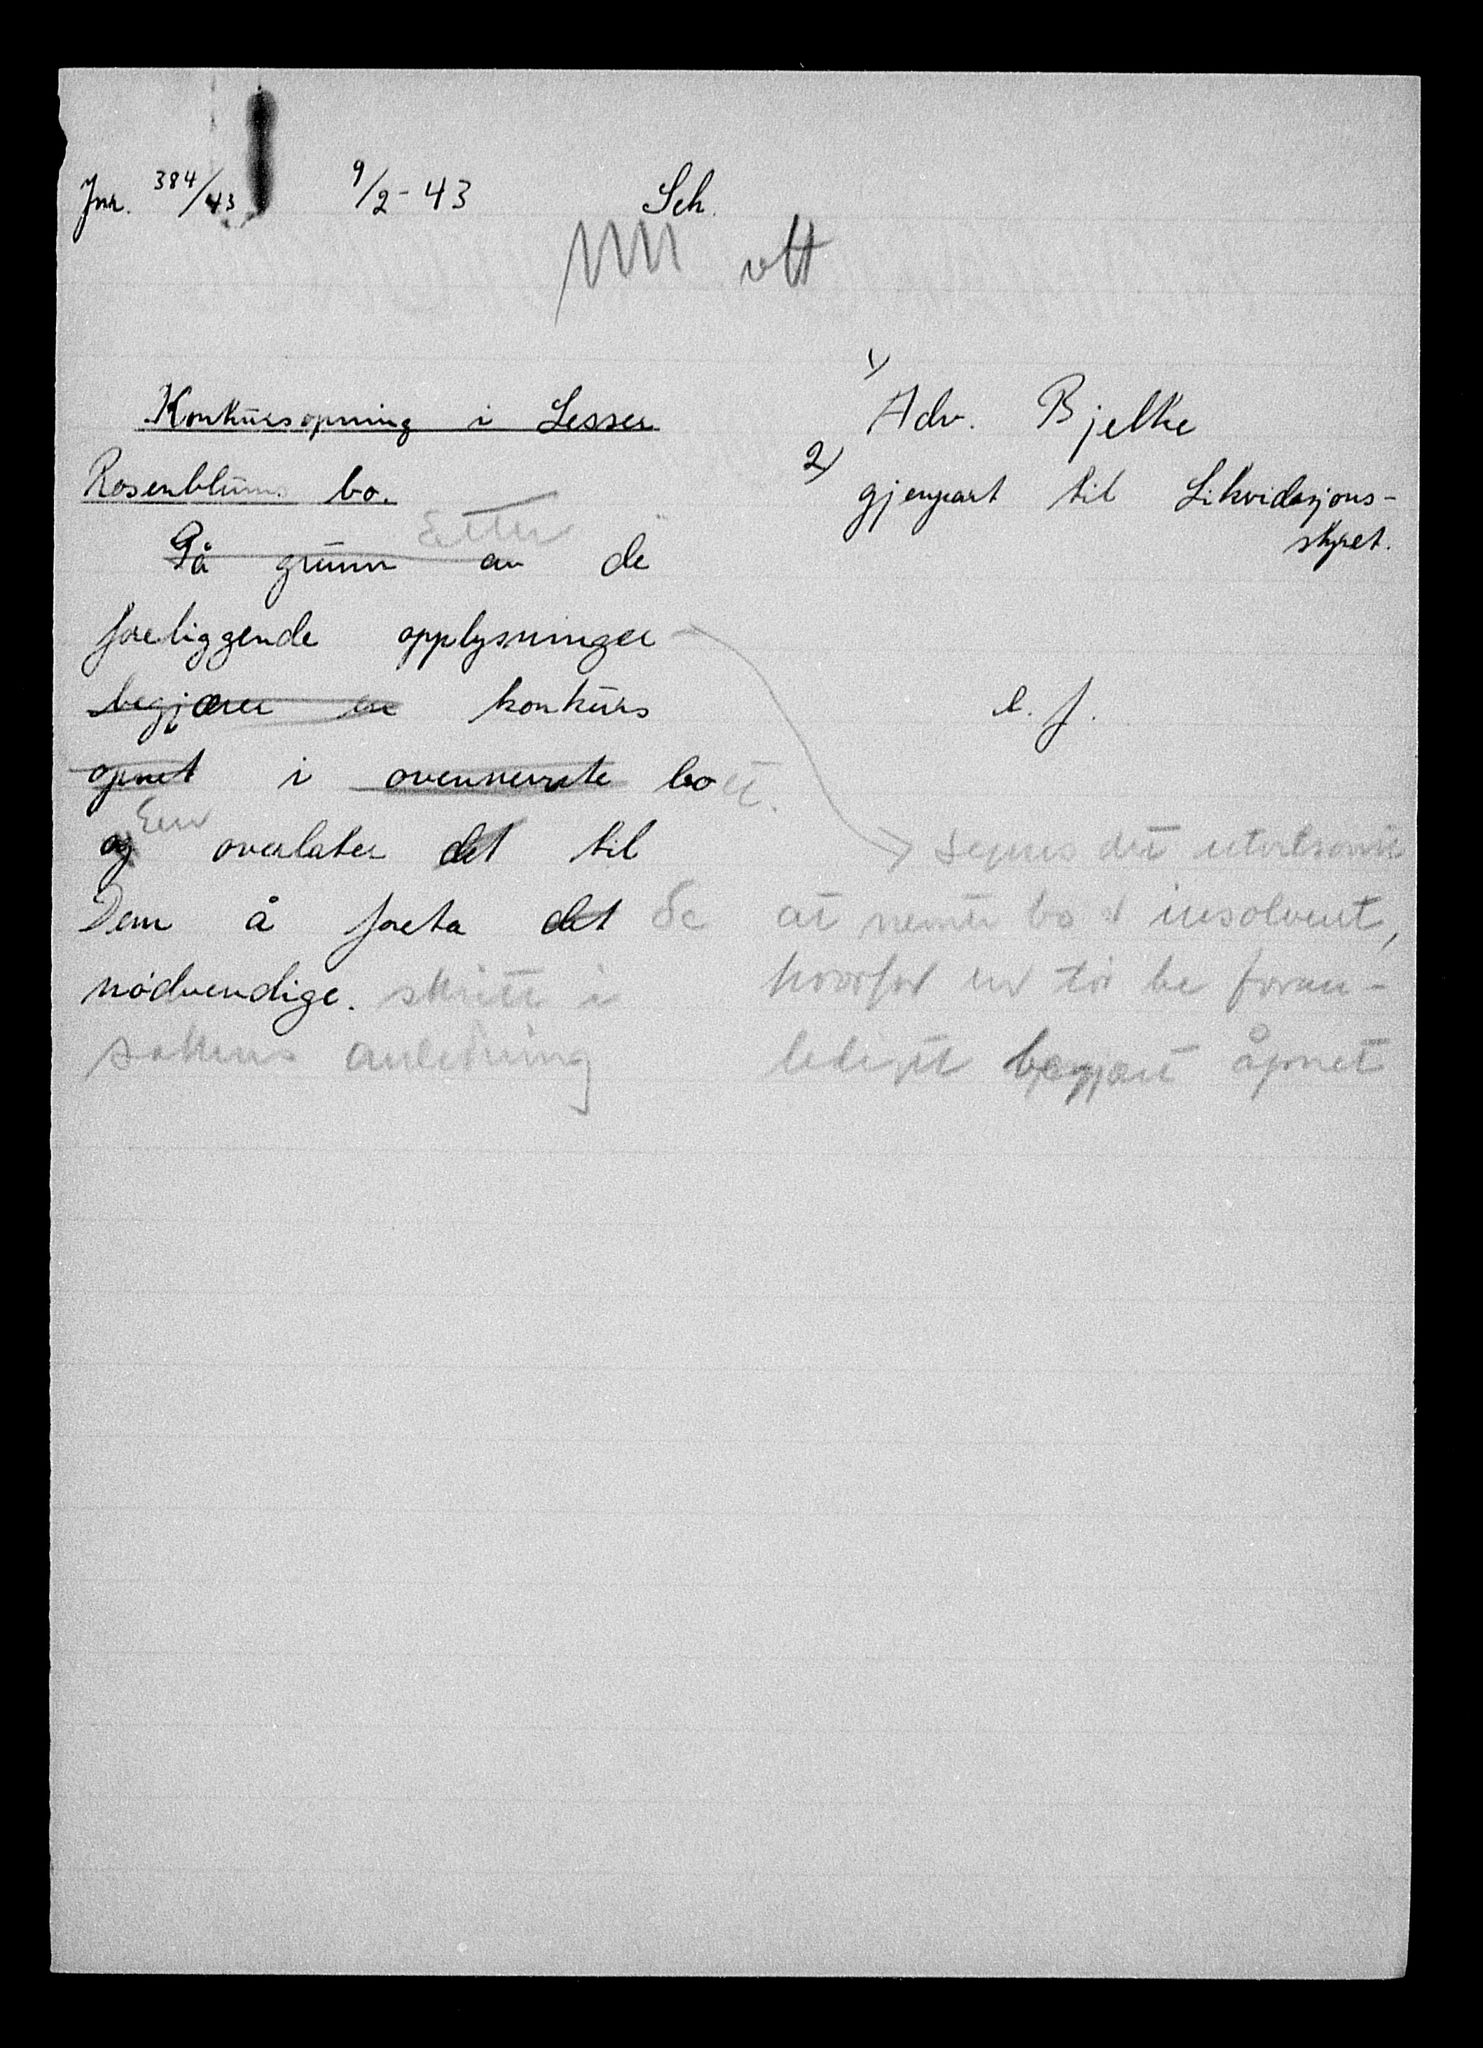 Jnr. 384/43 9/2-43 Sch.
Konkursopning i Lesser
Rosenblums bo.
Etter
På grunn av de
foreliggende opplysninger
begjærer en konkurs
opnet i ovennevnte boet.
En
og overlater det til
Dem å foreta det de
nødvendige. skritt i
sakens anledning
1)
Adv. Bjelke
2)
gjenpart til Likvidasjons-
styret.
e. f.
synes det utvilsomt
at nevnte bo er insolvent,
hvorfor en tør be foran-
lediget begjært åpnet